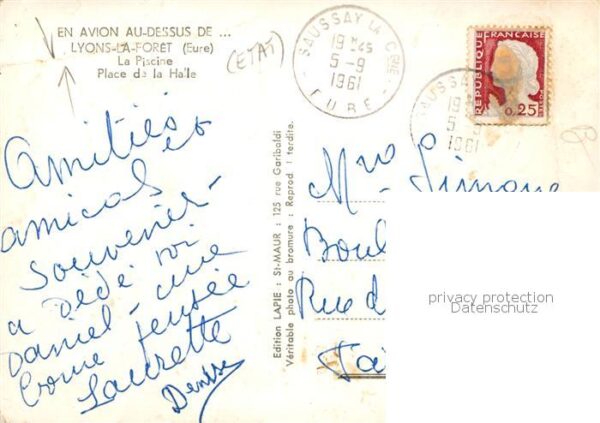 EN AVION AU-DESSUS DE ...
LYONS-LA-FORÊT (Eure)
La Piscine
Place de la Halle
(ETAT)
SAUSSAY LA CGNE
19H45
5-9
1961
EURE
REPUBLIQUE FRANÇAISE
0,25
SAUSSAY
19
5
1961
Amitiés et
amical
souvenir
a Dédé
Daniel - une
bonne pensée
Laurette
Denise
Edition LAPIE : St-MAUR : 125 rue Garibaldi
Véritable photo au bromure : Reprod. Interdite.
Simone
Boul
Rue d
privacy protection
Datenschutz